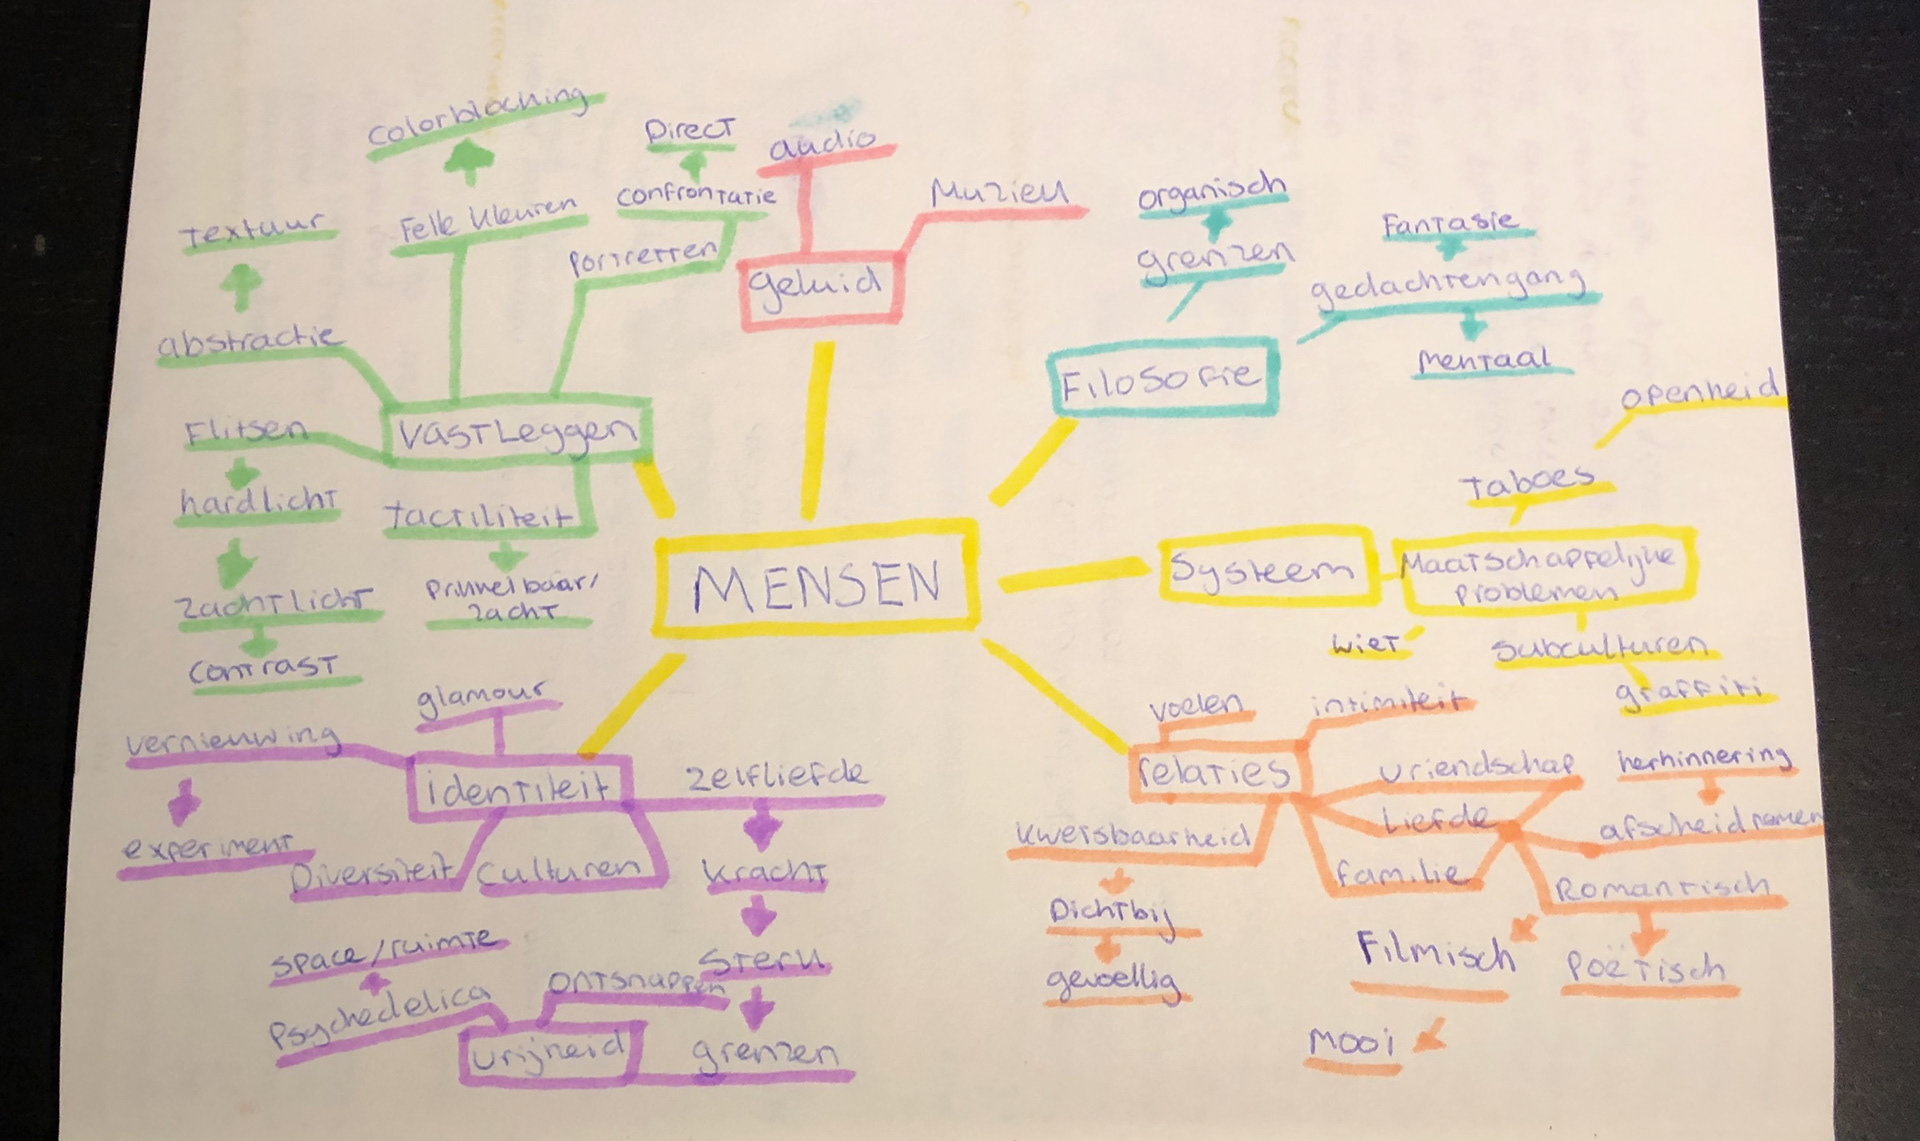 colorblocking
Direct
audio
confrontatie
Muziek
organisch
textuur
Felle kleuren
portretten
geluid
grenzen
Fantasie
gedachtengang
abstractie
Filosofie
Mentaal
openheid
Flitsen
VASTLeggen
Taboes
hardlicht
tactiliteit
MENSEN
Systeem
Maatschappelijke
problemen
zachtlicht
zacht
contrast
wiet
subculturen
graffiti
glamour
voelen
intimiteit
vernieuwing
identiteit
zelfliefde
relaties
vriendschap
herhinnering
experiment
Diversiteit
Culturen
kracht
kwetsbaarheid
Liefde
familie
afscheid nemen
Romantisch
space/ruimte
Psychedelica
ontsnappen
Sterk
Dichtbij
gevoellig
Filmisch
Poëtisch
vrijheid
grenzen
Mooi